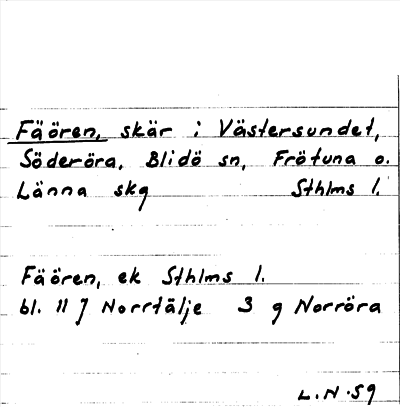 Fäören, skär i Västersundet,
Söderöra, Blidö sn, Frötuna o.
Länna skg Sthlms l.
Fäören, ek Sthlms l.
bl. 11 J Norrtälje 3 g Norröra
L.N.59